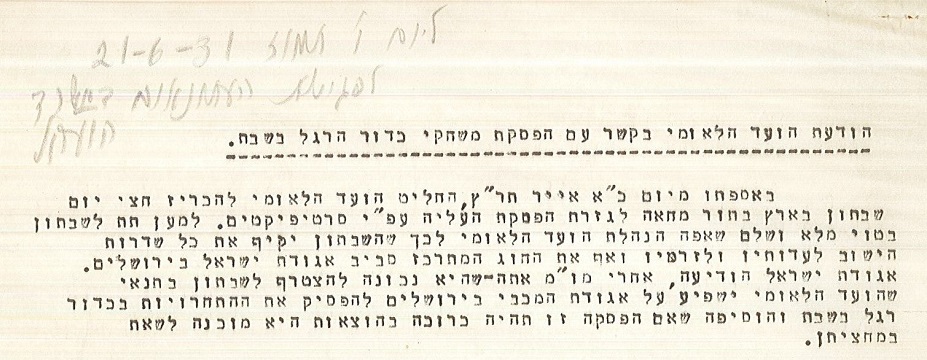 ליום ו' תמוז 21-6-31
לפגישת העתונאים במשרד
הועד
הודעת הועד הלאומי בקשר עם הפסקת משחקי כדור הרגל בשבת.
באספתו מיום כ"א אייר תר"ץ, החליט הועד הלאומי להכריז חצי יום
שבתון בארץ בתור מחאה לגזרת הפסקת העליה עפ"י סרטיפיקטים. למען תת לשבתון
בטוי מלא ושלם שאפה הנהלת הועד הלאומי לכך שהשבתון יקיף את כל שדרות
הישוב לעדותיו ולזרמיו ואף את החוג המתרכז סביב אגודת ישראל בירושלים.
אגודת ישראל הודיעה, אחרי מו"מ אתה-שהיא נכונה להצטרף לשבתון בתנאי
שהועד הלאומי ישפיע על אגודת המכבי בירושלים להפסיק את ההתחרויות בכדור
רגל בשבת והוסיפה שאם הפסקה זו תהיה כרוכה בהוצאות היא מוכנה לשאת
במחציתן.